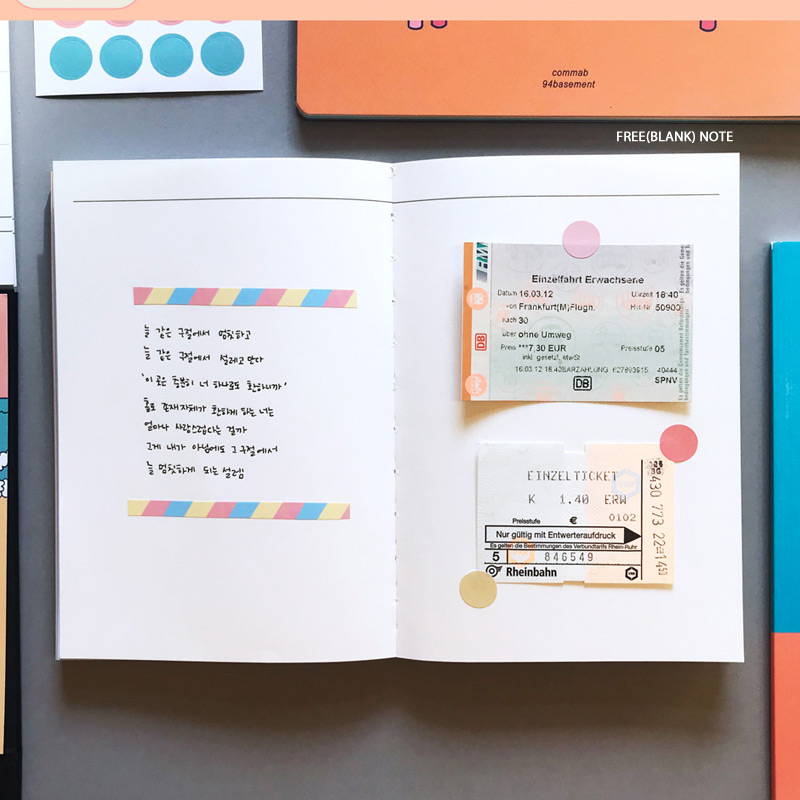 commab
94basement
FREE(BLANK) NOTE
늘 같은 구절에서 멈칫하고
늘 같은 구절에서 설레고 만다
'이 곳은 충분히 너 하나로도 환하니까'
홀로 존재자체가 환하게 되는 너는
얼마나 사랑스럽다는 걸까
그게 내가 아님에도 그 구절에서
늘 멈칫하게 되는 설렘
Einzelfahrt Erwachsene
Datum 16.03.12 Uhrzeit 18:40
von Frankfurt(M)Flugh. 50900
nach 30
über ohne Umweg
Preis ***7,30 EUR Preisstufe 05
inkl. gesetzl. MwSt
16.03.12 18.40 BARZAHLUNG 627893915 40444
DB
SPNV
DB
EINZELTICKET
K 1.40 ERW
Preisstufe € 0102
Nur gültig mit Entwerteraufdruck
Es gelten die Bestimmungen des Verbundtarifs Rhein-Ruhr
5 846549
Rheinbahn